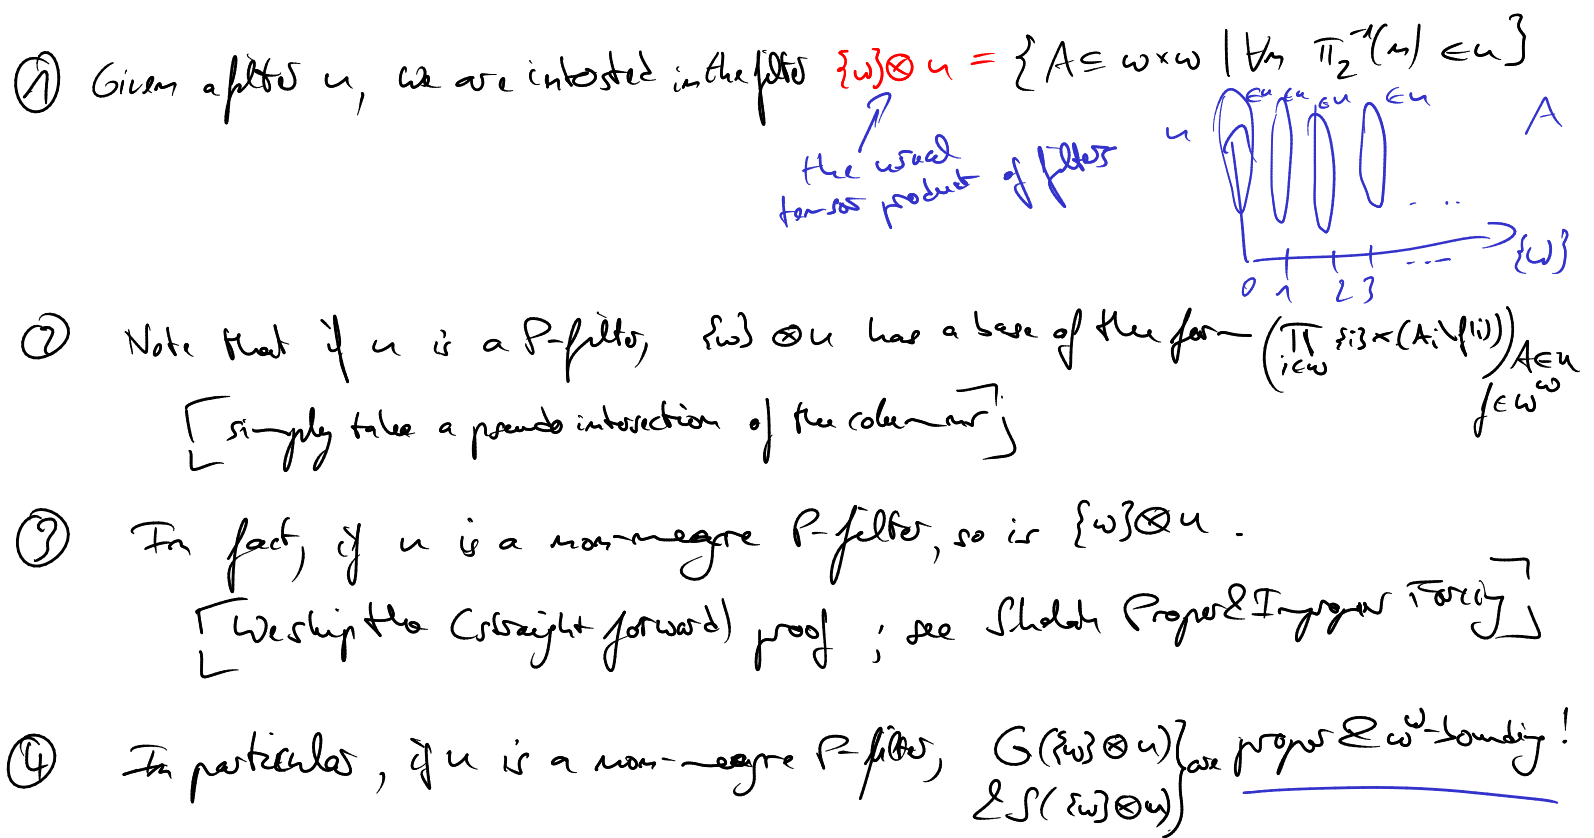 ① Given a filter u, we are intersted in the filter {ω}⊗u = {A ⊆ ω×ω | ∀n π₂⁻¹(n) ∈ u}
∈u ∈u ∈u ∈u
u A
the usual
tensor product of filters
0 1 2 3 ... {ω}
② Note that if u is a P-filter, {ω}⊗u has a base of the form (∏_{i∈ω} {i}×(A_i\f(i)))_{A∈u f∈ω^ω}
[simply take a pseudo intersection of the columns]
③ In fact, if u is a non-meagre P-filter, so is {ω}⊗u.
[We skip the (straight forward) proof; see Shelah Proper & Improper Forcing]
④ In particular, if u is a non-meagre P-filter, G({ω}⊗u) & S({ω}⊗u) } are proper & ω^ω-bounding!